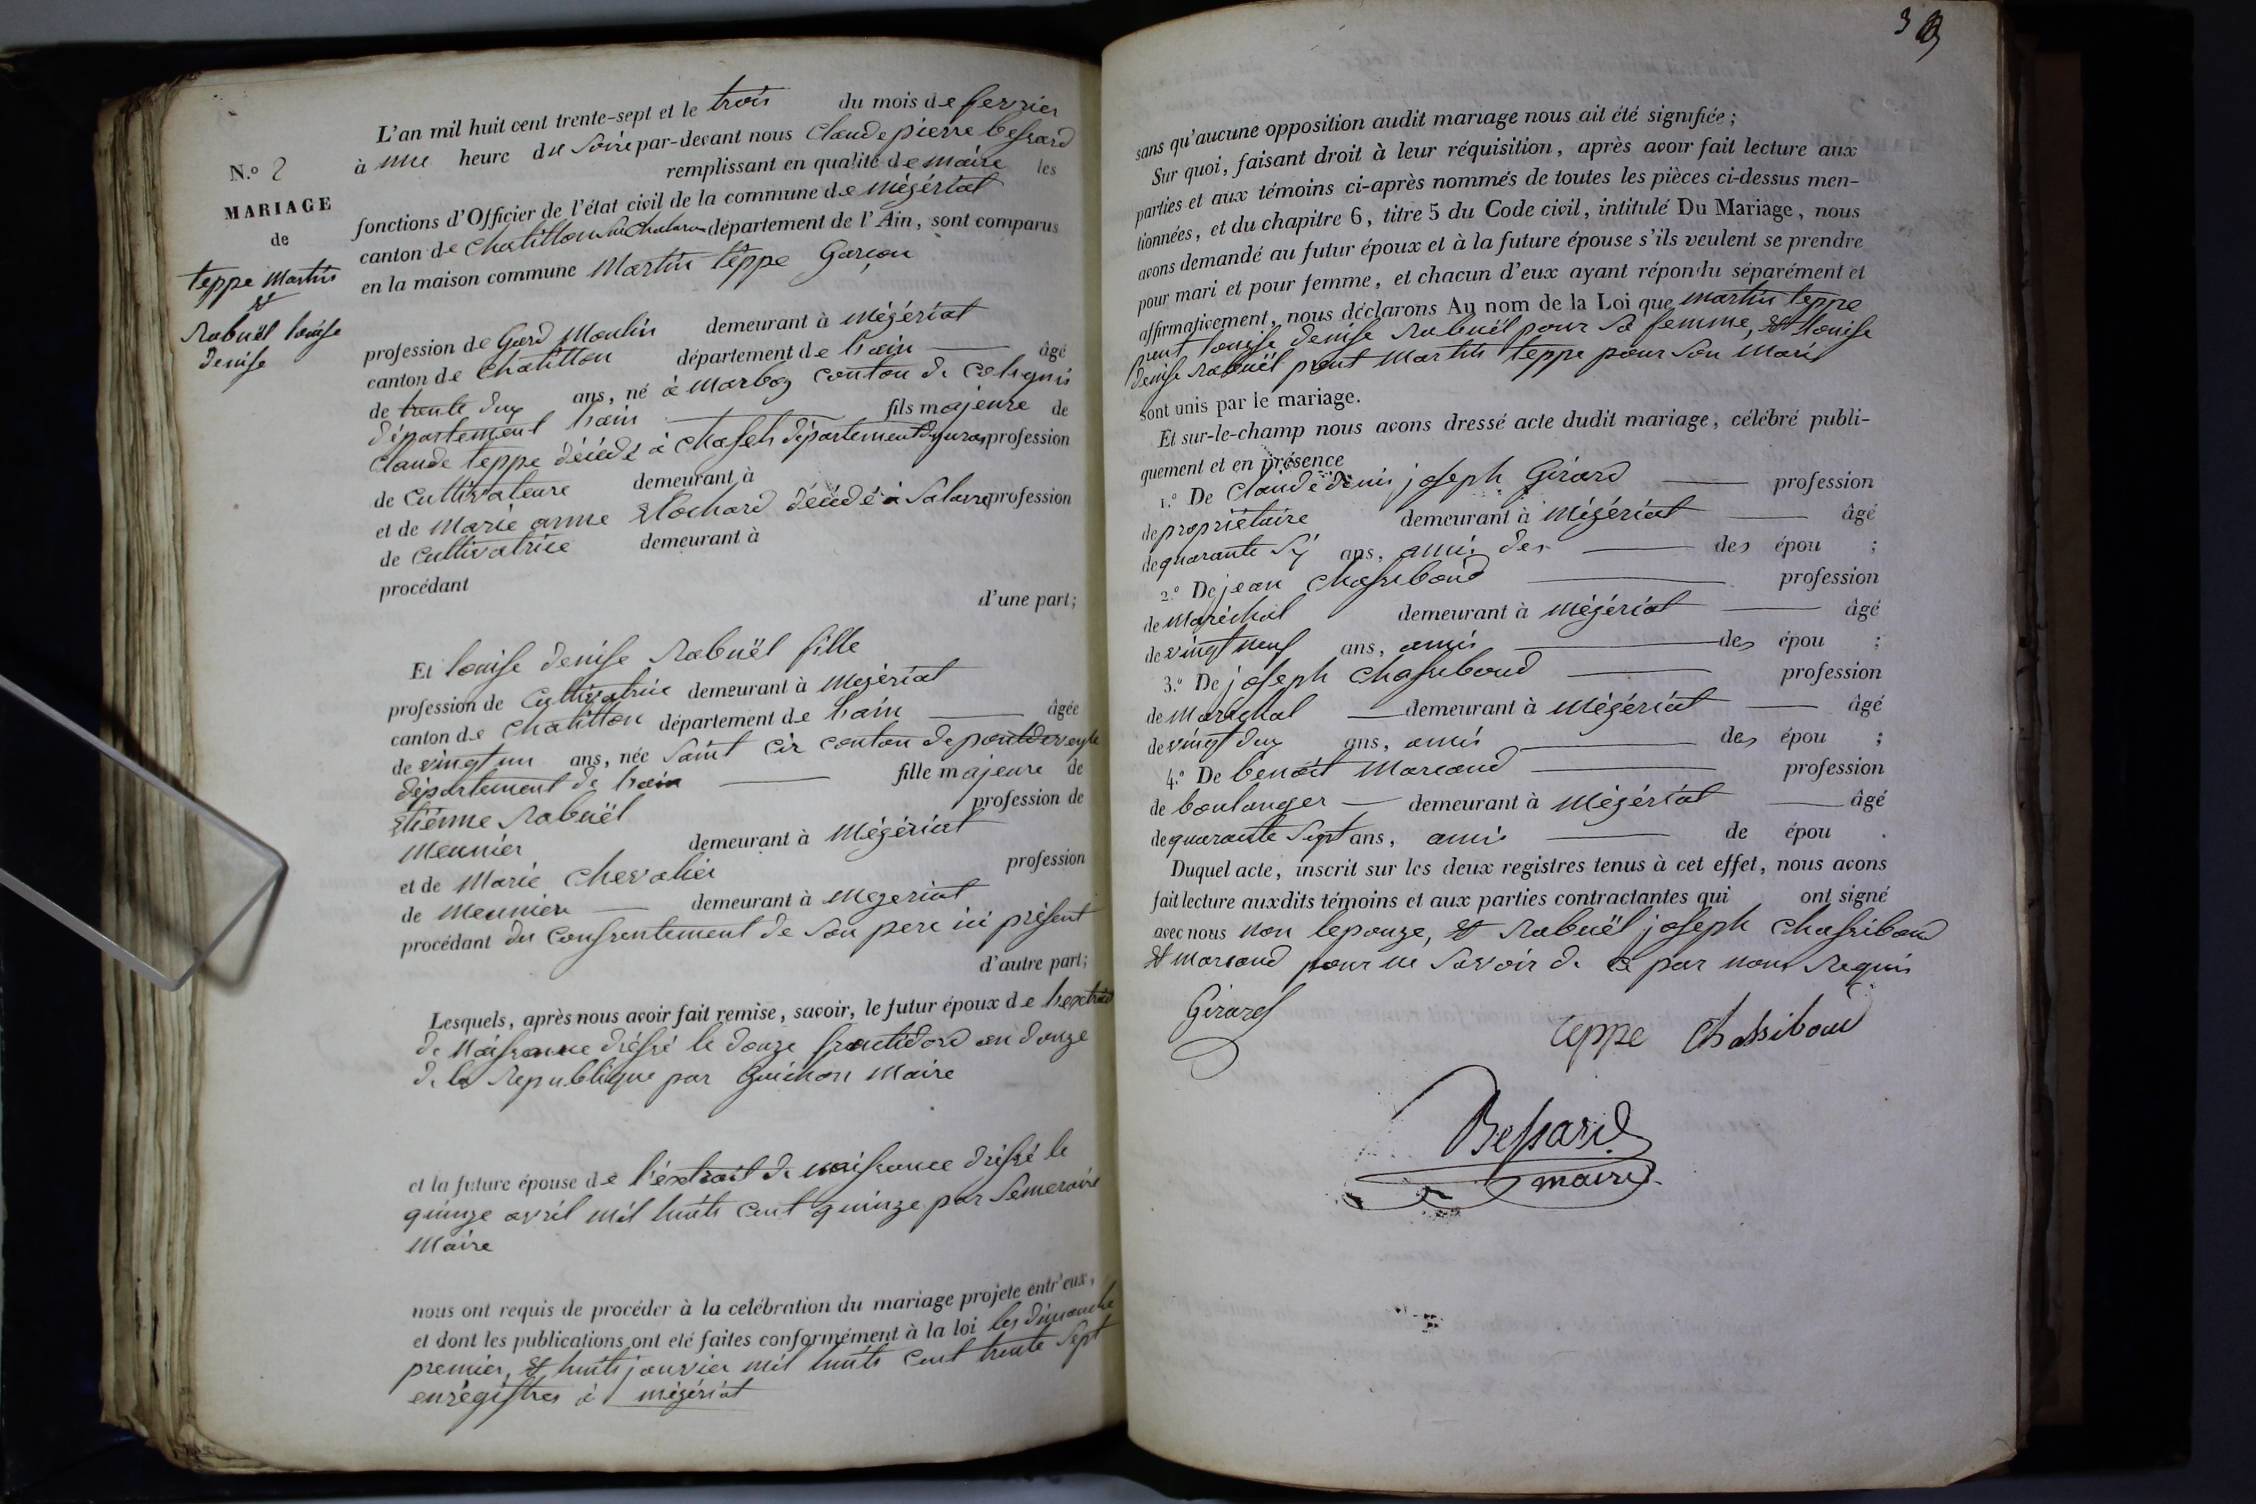 N.º 2
MARIAGE
de
teppe Martin
et
Rabuël louise
denise
L'an mil huit cent trente-sept et le trois du mois de fevrier
à une heure du Soire par-devant nous Claude pierre bessard
remplissant en qualité de maire les
fonctions d'Officier de l'état civil de la commune de mégériat
canton de Chatillon sur Chalaronne département de l'Ain, sont comparus
en la maison commune Martin teppe Garçon
profession de Gard Moulin demeurant à mégériat
canton de Chatillon département de lain âgé
de trente deux ans, né à marboz conton de colignis
département lain fils majeure de
Claude teppe décédé à département profession
de Cultivateure demeurant à
et de Marie anne décédé à profession
de Cultivatrice demeurant à
procédant
d'une part;
Et louise denise Rabuël fille
profession de Cultivatrice demeurant à Mégériat
canton de Chatillon département de lain âgée
de vingt un ans, née Saint Cir conton de pontdeveyle
département de lain fille majeure de
Etiénne Rabuël profession de
Meunier demeurant à Mégériat
et de Marie Chevalier profession
de Meunière demeurant à Megeriat
procédant du Consentement de Son pere ici présent
d'autre part;
Lesquels, après nous avoir fait remise, savoir, le futur époux de l'extrait
de Naissance dréssé le douze fructidord an douze
de la Republique par Guichon Maire
et la future épouse de l'extrait de naissance dréssé le
quinze avril mil huits cent quinze par
Maire
nous ont requis de procéder à la celébration du mariage projeté entr'eux,
et dont les publications ont été faites conformément à la loi les dimanche
premier, et huits janvier mil huits cent trente Sept
enrégistres à mégériat
sans qu'aucune opposition audit mariage nous ait été signifiée;
Sur quoi, faisant droit à leur réquisition, après avoir fait lecture aux
parties et aux témoins ci-après nommés de toutes les pièces ci-dessus men-
tionnées, et du chapitre 6, titre 5 du Code civil, intitulé Du Mariage, nous
avons demandé au futur époux et à la future épouse s'ils veulent se prendre
pour mari et pour femme, et chacun d'eux ayant répondu séparément et
affirmativement, nous déclarons Au nom de la Loi que martin teppe
prent louise denise Rabuël pour Sa femme, et louise
denise Rabuël prent Martin teppe pour Son Maris
sont unis par le mariage.
Et sur-le-champ nous avons dressé acte dudit mariage, célébré publi-
quement et en présence
1.º De Claude denis joseph Girard profession
de propriétaire demeurant à Mégériat âgé
de quarante Six ans, amis des des épou ;
2.º De jean Chassiboud profession
de Maréchal demeurant à mégériat âgé
de vingt neuf ans, amis des épou ;
3.º De joseph Chassiboud profession
de Maréchal demeurant à Mégériat âgé
de vingt deux ans, amis des épou ;
4.º De benoit Marcaud profession
de boulanger demeurant à Mégériat âgé
de quarante Sept ans, amis de épou .
Duquel acte, inscrit sur les deux registres tenus à cet effet, nous avons
fait lecture auxdits témoins et aux parties contractantes qui ont signé
avec nous non lepouze, et Rabuël joseph Chassiboud
et marcaud pour ne Savoir de ce par nous Requis
Girard
teppe Chassiboud
Bessard
maire